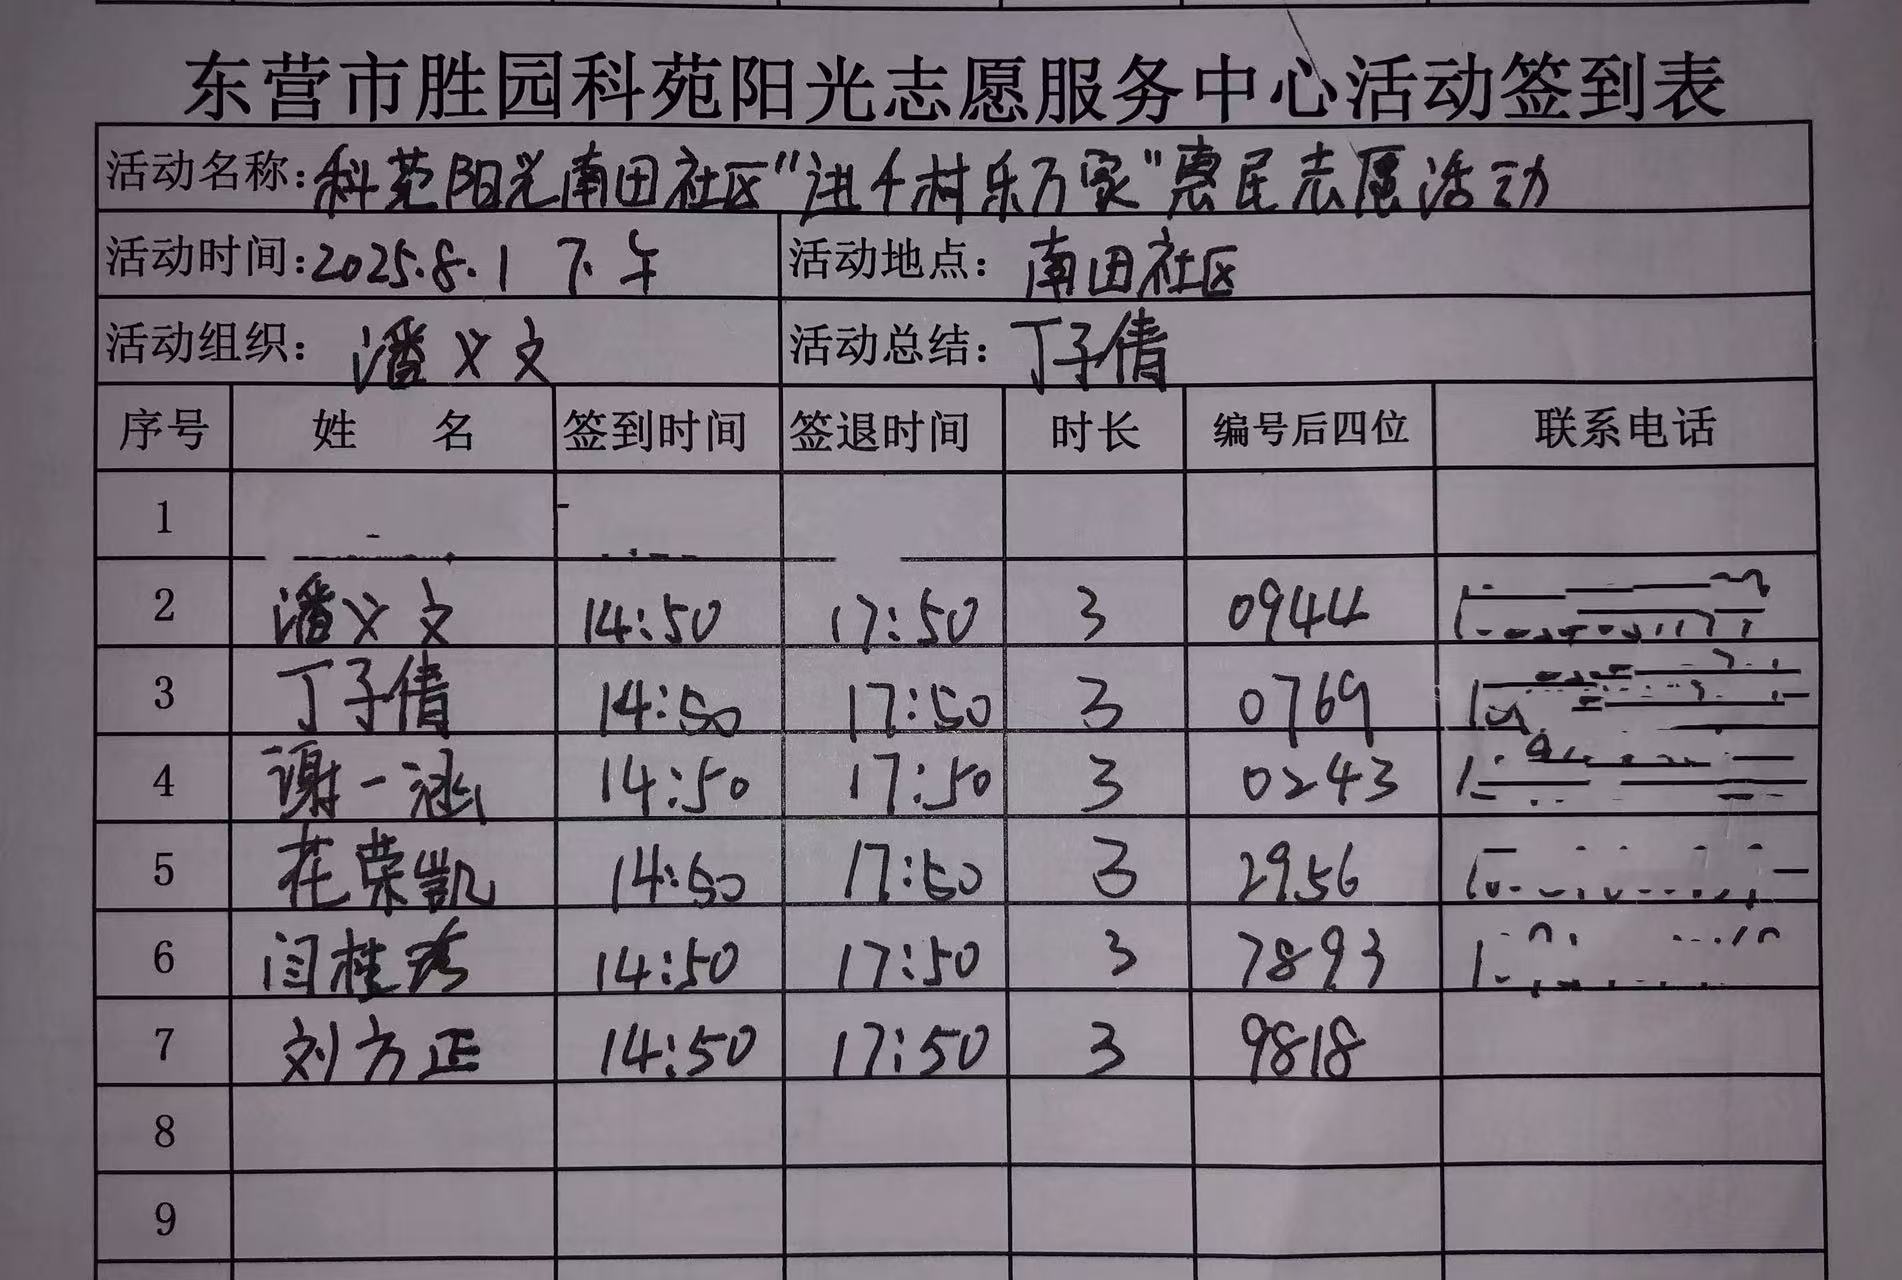 东营市胜园科苑阳光志愿服务中心活动签到表
活动名称:科苑阳光南田社区"进千村乐万家"惠民志愿活动
活动时间:2025.8.1 下午 活动地点:南田社区
活动组织:潘义文 活动总结:丁子倩
序号 姓 名 签到时间 签退时间 时长 编号后四位 联系电话
1
2 潘义文 14:50 17:50 3 0944
3 丁子倩 14:50 17:50 3 0769
4 谢一涵 14:50 17:50 3 0243
5 花荣凯 14:50 17:50 3 2956
6 闫桂秀 14:50 17:50 3 7893
7 刘方正 14:50 17:50 3 9818
8
9